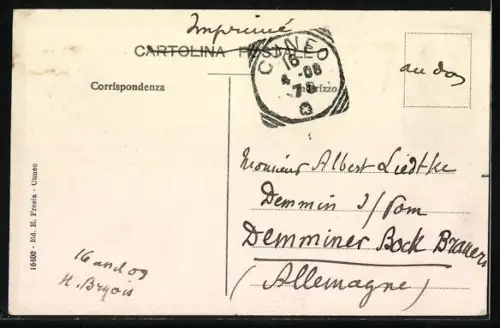 Imprimé
CARTOLINA POSTALE
CUNEO
16
4-08
7S
Corrispondenza
Indirizzo
au dos
Monsieur Albert Liedtke
Demmin I/Pom
Demminer Bock Brauerei
(Allemagne)
16 and 09
H. Bryois
16400 - Ed. E. Fresia - Cuneo